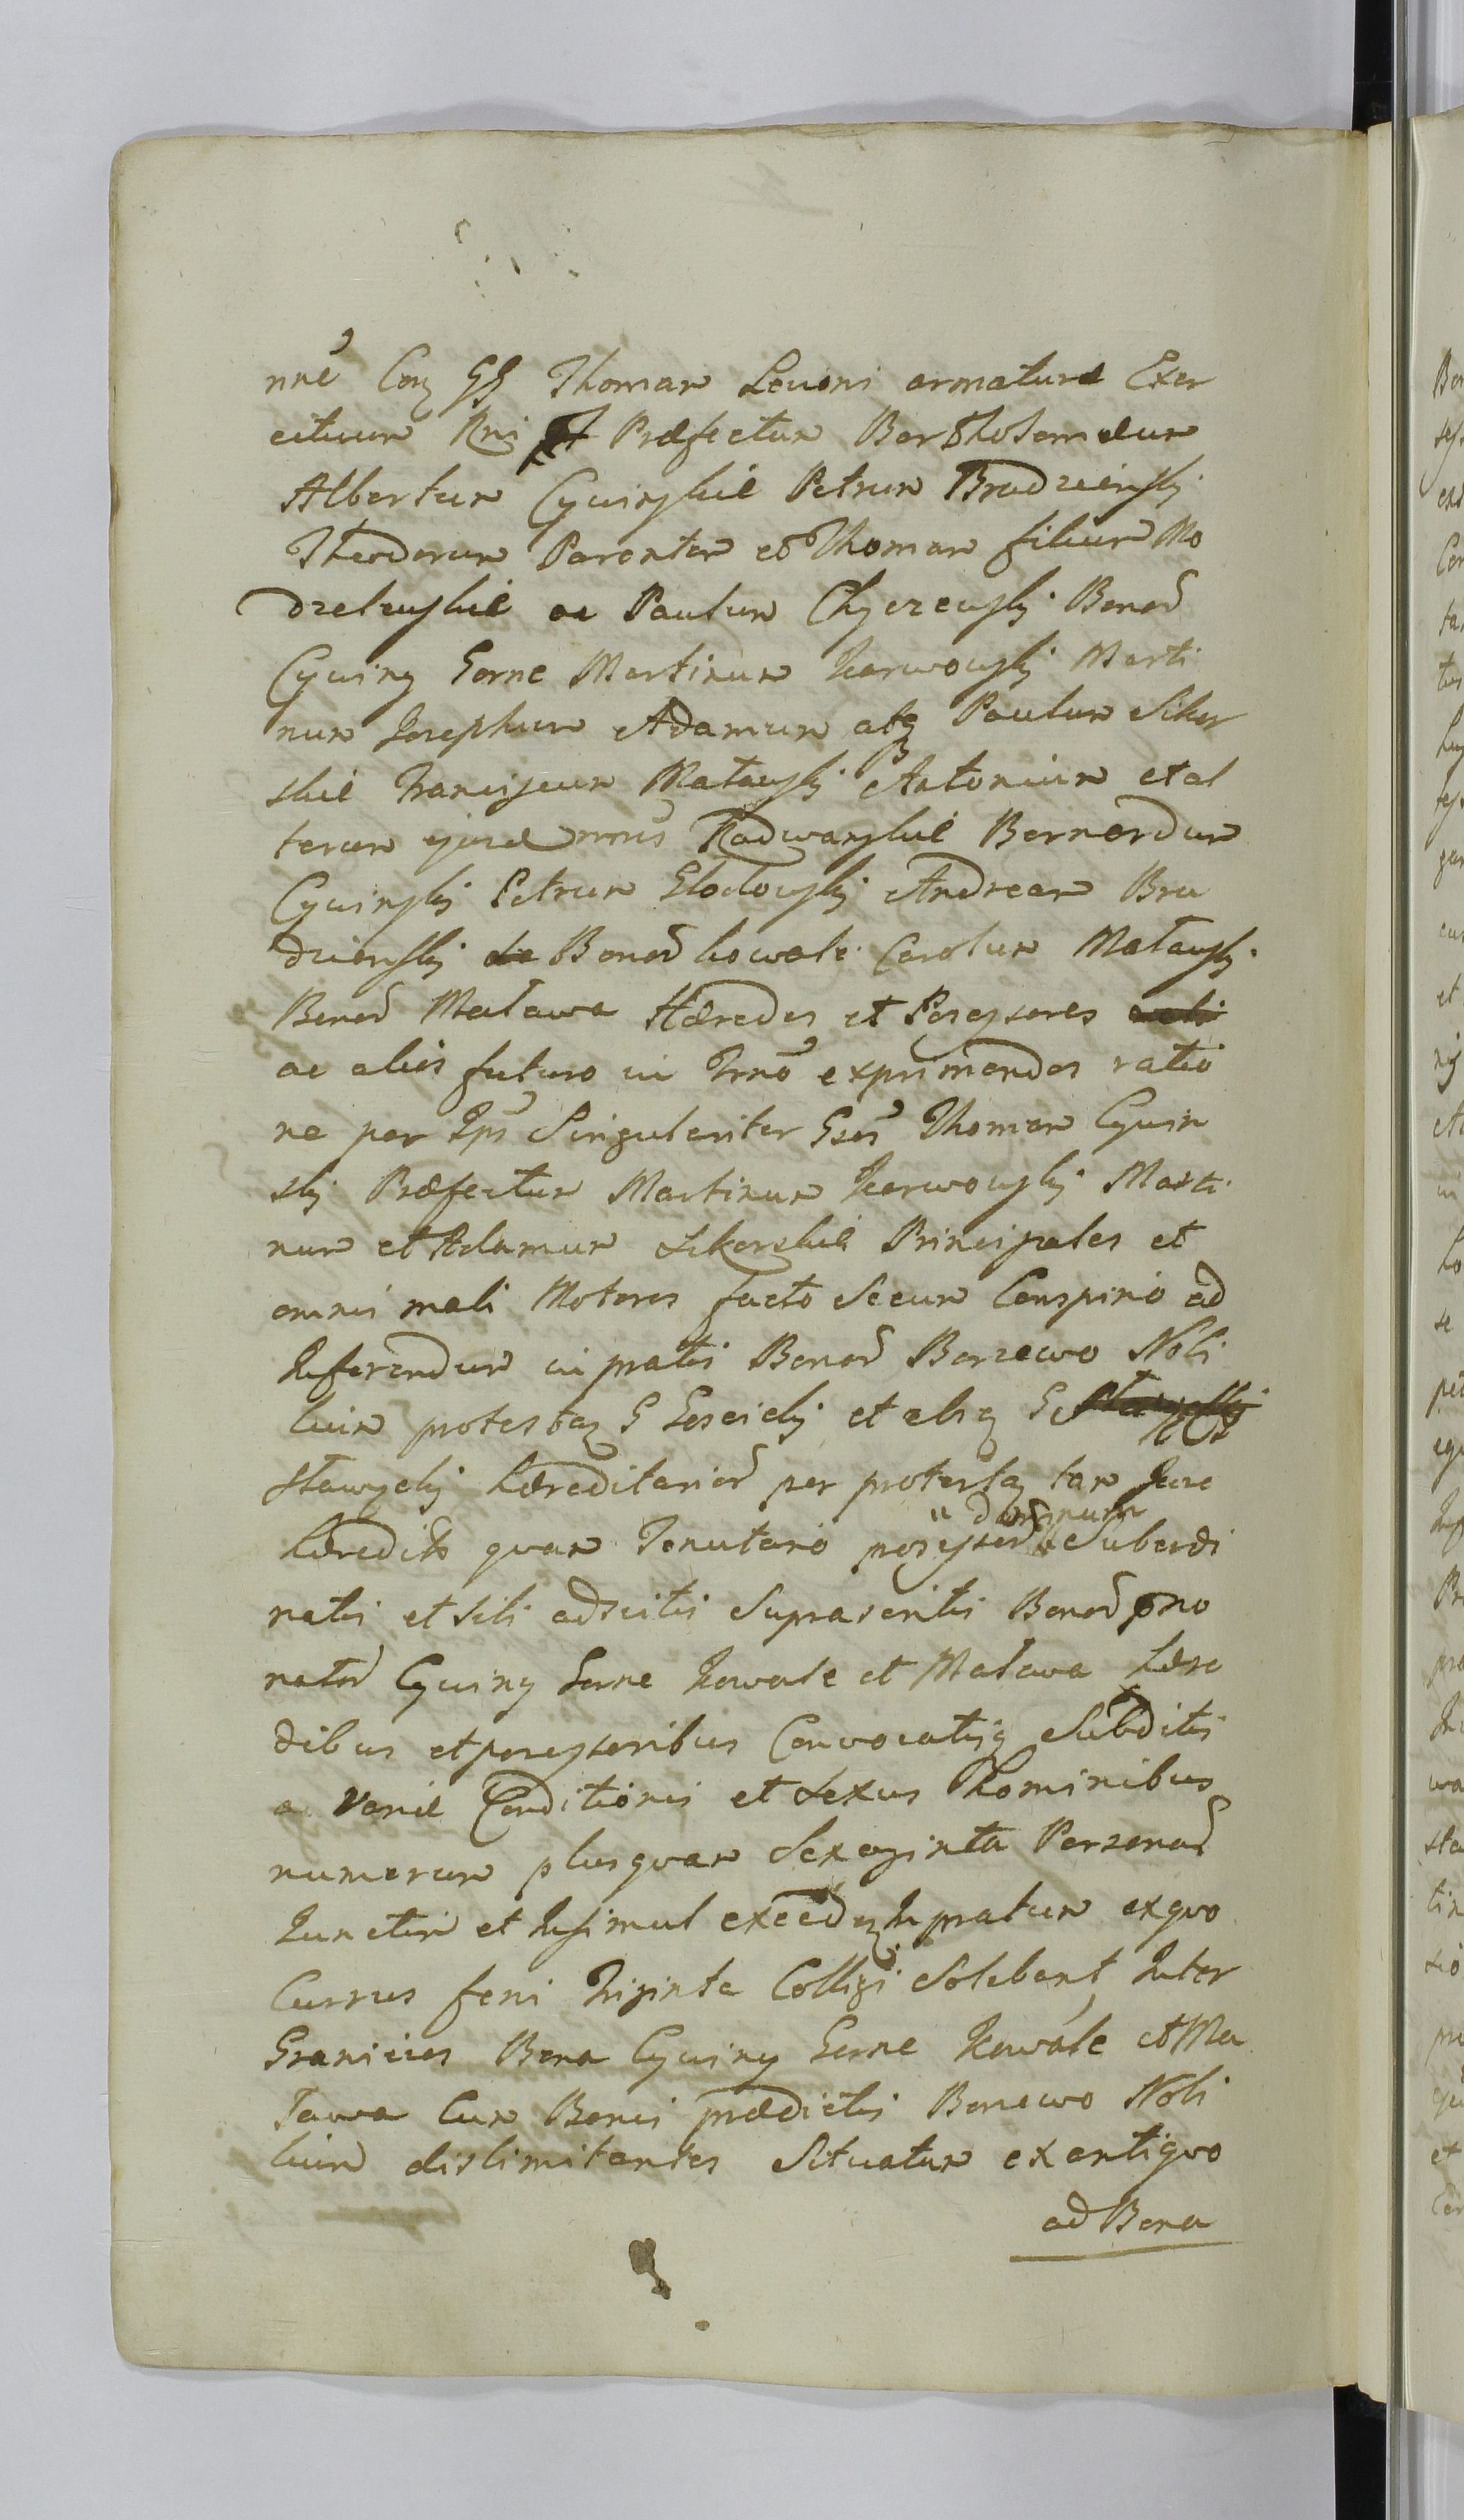 nne Con GG Thomam Levoris armaturæ Exer
cituum Rni Præfectum Bartholomæum
Albertum Cywinskie Petrum Brudzienski
Theodorum Parentem et Thomam filium Mo
dzelewskie ac Paulum Chyczewski Bonor
Cywiny Gorne Martinum Karwowski Marti
num Josephum Adamum atq Paulum Sikor
skie Franciscum Matawski Antonium et al
terum ejusd nnis Radwanskie Bernardum
Cywinski Petrum Glodowski Andream Bru
dzienski Bonor kowale Carolum Matawski
Bonor Matawa Hæredes et Possessores
ac alios futuro in Trno exprimendos ratio
ne per Ips Singulariter Gsos Thomam Cywin
ski Præfectum Martinum Karwowski Marti
num et Adamum Sikorskie Principales et
omnis mali Motores facto Secum Conspirio ad
Inferendum in pratis Bonor Borzewo Noli
cum protestaq G Goscickj et alsq G
Stawyckj hæreditarior per protestaq tam Jure
hæredito quam Tenutario possessor damnum Subordi
natis et sibi adscitis Suprascritis Bonor pno
nator Cywiny Gorne Kowale et Matawa hære
dibus et possessoribus Convocatisq Subditis
a Variæ Conditionis et Sexus Hominibus
numerum plusquam Sexaginta Personar
Junctim et Insimul exceedeq In pratum exquo
Currus feni Triginta Colligi Solebant Inter
Granicies Bona Cywiny Gorne Kowale et Ma
tawa cum Bonis prædictis Borzewo Noli
cum dislimitantes Situatum ex antiquo
ad Bona